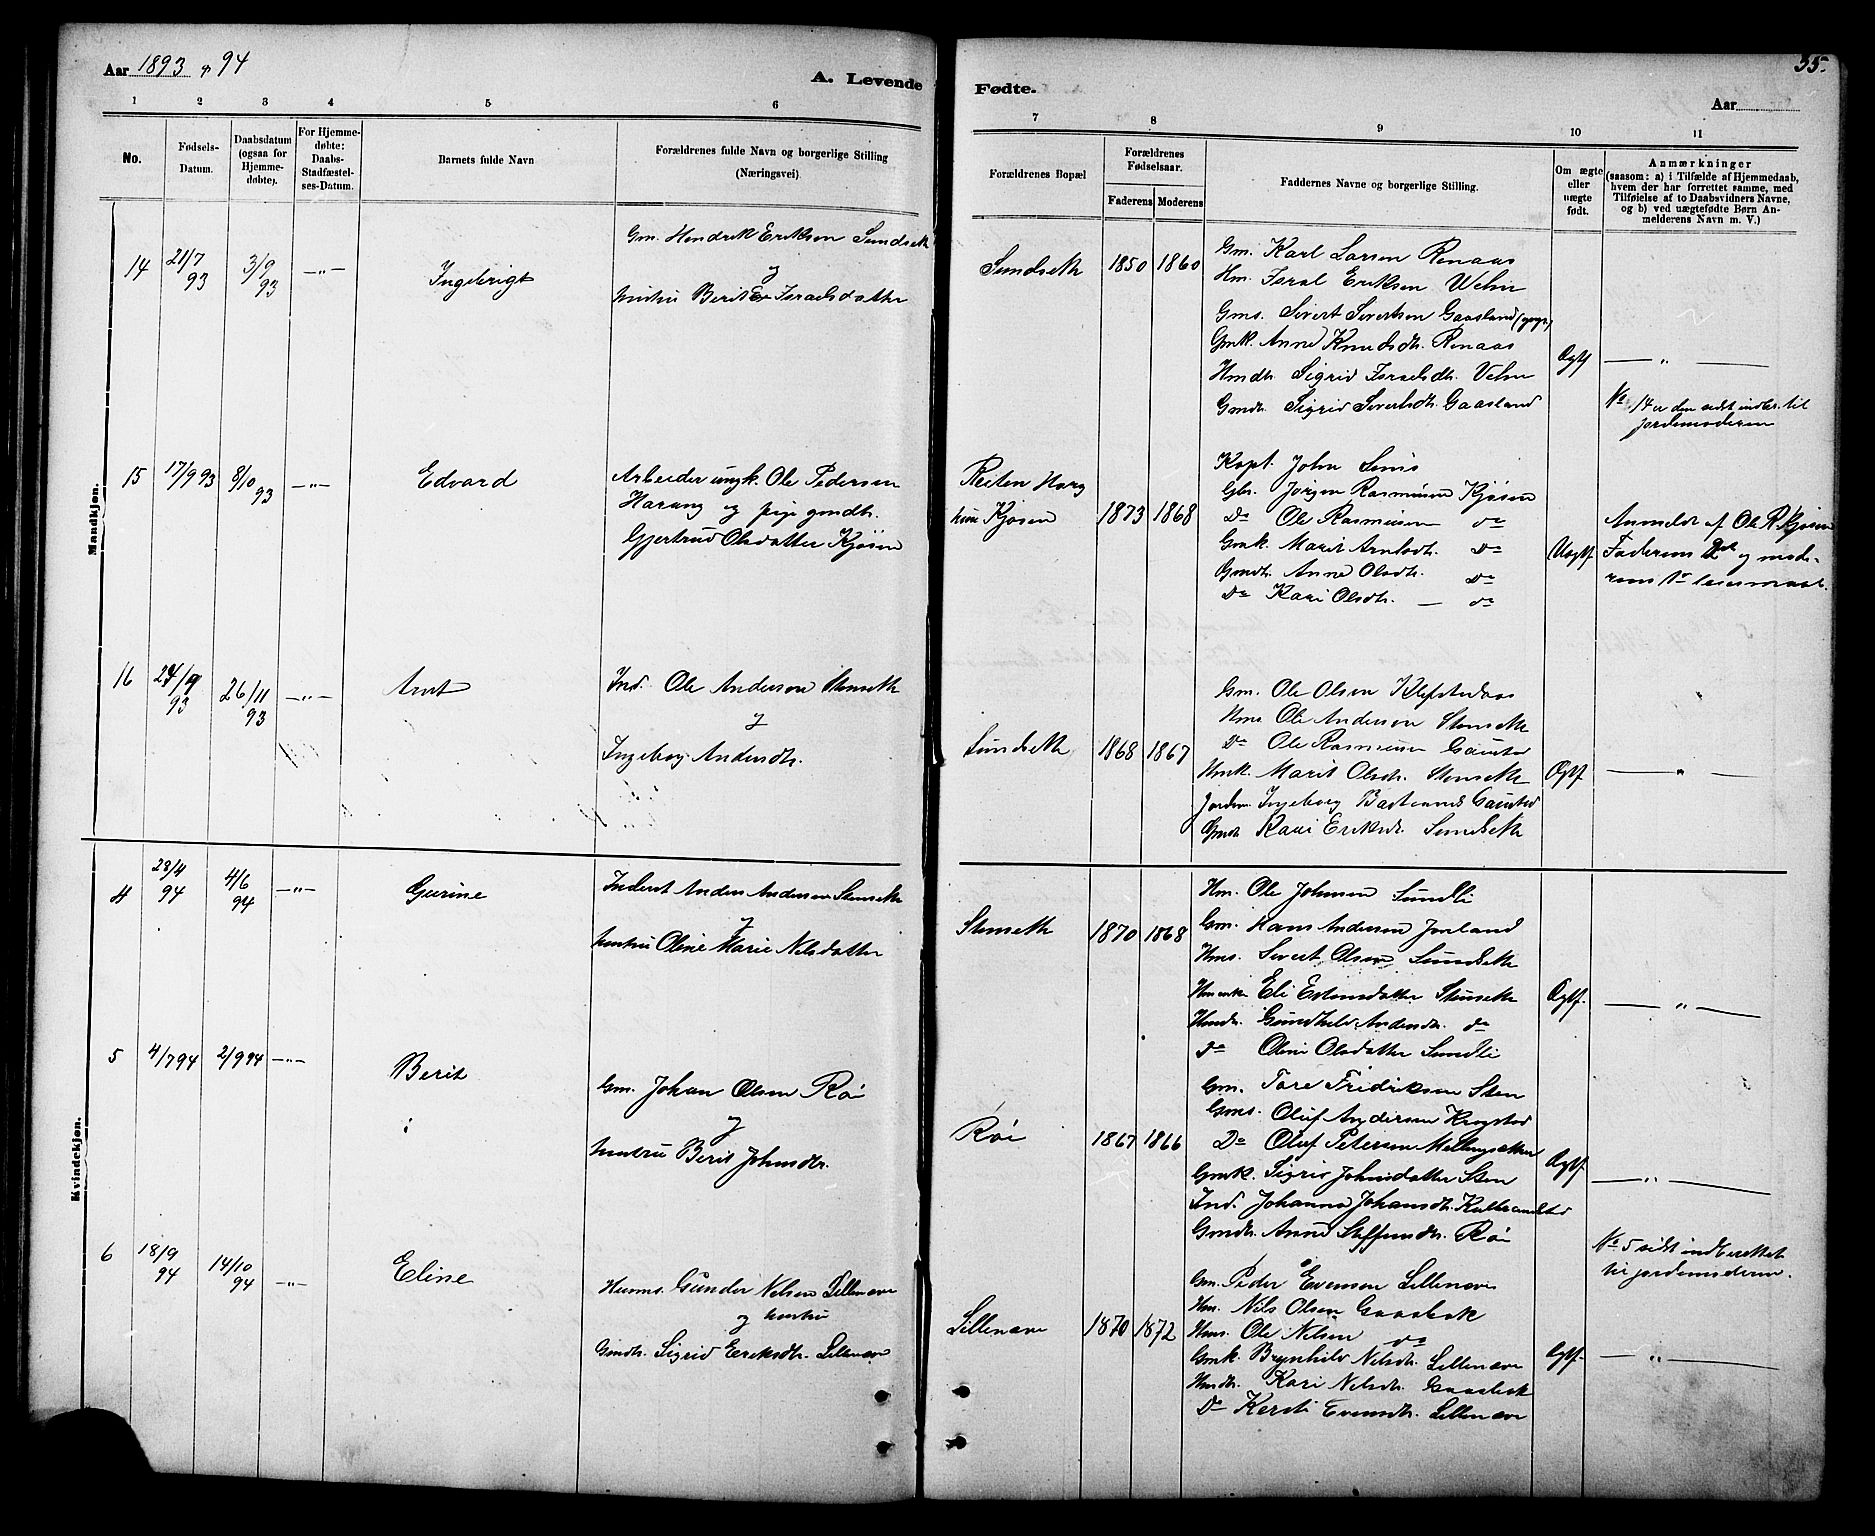 Aar 1893 & 94
A. Levende
Fødte.
35.
Aar
1 2 3 4 5 6
7 8 9 10 11
No.
Fødsels-
Datum.
Daabsdatum
(ogsaa for
Hjemme-
døbte).
For Hjemme-
døbte:
Daabs-
Stadfæstel-
ses-Datum.
Barnets fulde Navn
Forældrenes fulde Navn og borgerlige Stilling
(Næringsvei).
Forældrenes Bopæl
Forældrenes
Fødselsaar.
Faderens Moderens
Faddernes Navne og borgerlige Stilling.
Om ægte
eller
uægte
født.
Anmærkninger
(saasom: a) i Tilfælde af Hjemmedaab,
hvem der har forrettet samme, med
Tilføielse af to Daabsvidners Navne,
og b) ved uægtefødte Børn An-
melderens Navn m. V.)
Mandkjøn.
14 21/7 93 3/9 93 —"— Ingebrigt
Gm. Hendrik Eriksen Sundseth
og
hustru Berit Israelsdatter
Sundseth 1850 1860
Gm. Karl Larsen Renaas
Hm. Israel Eriksen Velm
Gms. Sivert Sivertsen Gaasland
Gmk. Anne Knudsdtr. Renaas
Hmdtr. Sigrid Israelsdtr. Velm
Gmdtr. Sigrid Sivertsdtr. Gaasland
Ægtf —"—
No 14 er den sidst indber. til
jordemoderen
15 17/9 93 8/10 93 —"— Edvard
Arbeider ungk. Ole Pedersen
Harang og pige gmdtr.
Gjertrud Olsdatter Kjøsen
Reiten Harg
Kjøsen 1873 1868
Kapt. John
Gbr. Jørgen Rasmusen Kjøsen
Do Ole Rasmusen do
Gmk. Marit Arntsdtr. Do
Gmdtr. Anne Olsdtr. Do
Do Kari Olsdtr. — do
Uægtf
Anmeldt af Ole R. Kjøsen
Faderens 2det og mode-
rens 1ste leiermaal.
16 24/9 93 26/11 93 —"— Arnt
Ind. Ole Anderson Stenseth
og
Ingeborg Andersdtr.
Sundseth 1868 1867
Gm. Ole Olsen Klefstadaas
Hms. Ole Anderson Stenseth
Do Ole Rasmusen Gaustad
Hmk. Marit Olsdtr. Stenseth
Jordem. Ingeborg Bastiansd. Gaustad
Gmdtr. Kari Eriksd. Sundseth
Ægtf. —"—
Kvindekjøn.
4 23/4 94 4/6 94 —"— Gurine
Inderst Anders Andersen Stenseth
og
hustru Oline Marie Nilsdatter
Stenseth 1870 1868
Hm. Ole Johnsen Sundli
Gm. Hans Andersen Jorland
Hms. Sivert Olsen Sundseth
Hmenke Eli Estensdatter Stenseth
Hmdtr. Gundhild Andersdtr. do
Do Oline Olsdatter Sundli
Ægtf. —"—
5 4/7 94 2/9 94 —"— Berit
Gm. Johan Olsen Røi
og
hustru Berit Johnsdtr.
Røi 1867 1866
Gm. Tore Fridriksen Sten
Gms. Oluf Andersen Krogstad
Do Oluf Petersen
Gmk. Sigrid Johnsdatter Sten
Ind. Johanna Johansdtr.
Gmdtr. Anne Steffensdtr. Røi
Ægtf. —"—
No 5 sidst indberettet
til jordemoderen.
6 18/9 94 14/10 94 —"— Eline
Husms. Gunder Nilsen Lillenæve
og hustru
Gmdtr. Sigrid Eriksdtr. Lillenæve
Lillenæve 1870 1872
Gm. Peder Evensen Lillenæve
Hm. Nils Olsen Gaasbak
Hms. Ole Nilsen do
Gmk. Brynhild Nilsdtr. Lillenæve
Hmdtr. Kari Nilsdtr. Gaasbak
Do Kersti Evensdtr. Lillenæve
Ægtf. —"—